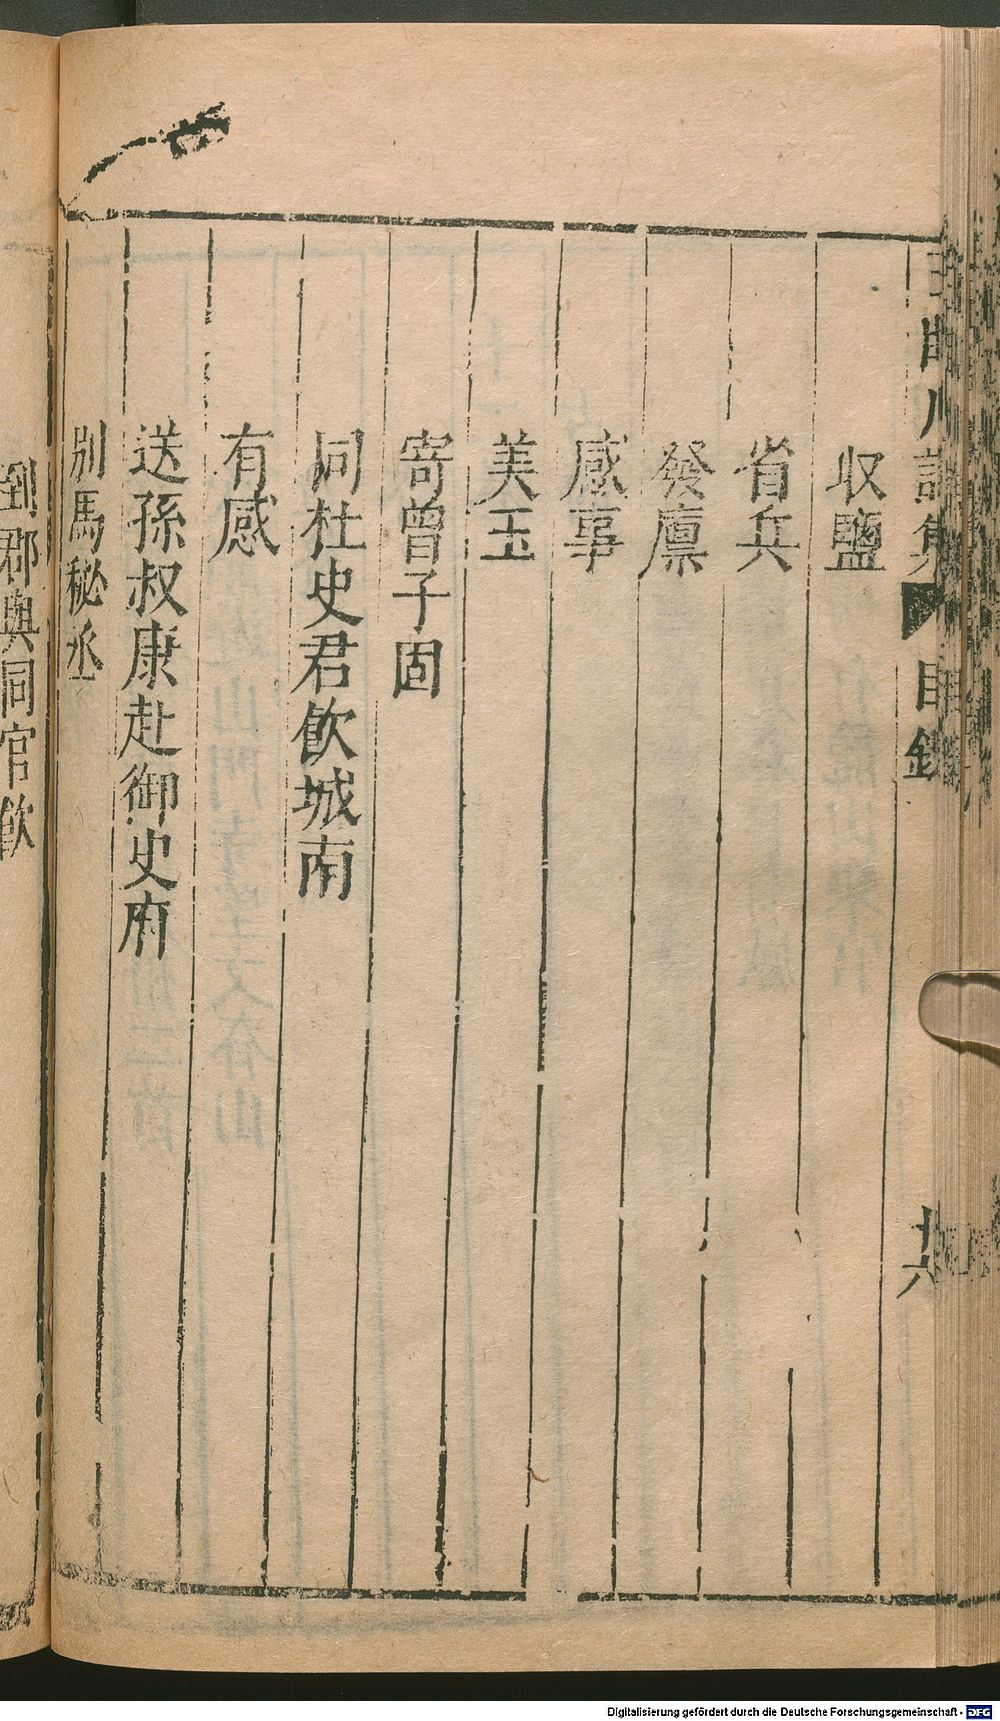 収鹽
省兵
發廪
感事
美玉
寄曾子固
同杜史君飲城南
有感
送孫叔康赴御史府
別馬秘丞
到郡與同官飲
目錄
Digitalisierung gefördert durch die Deutsche Forschungsgemeinschaft - DFG